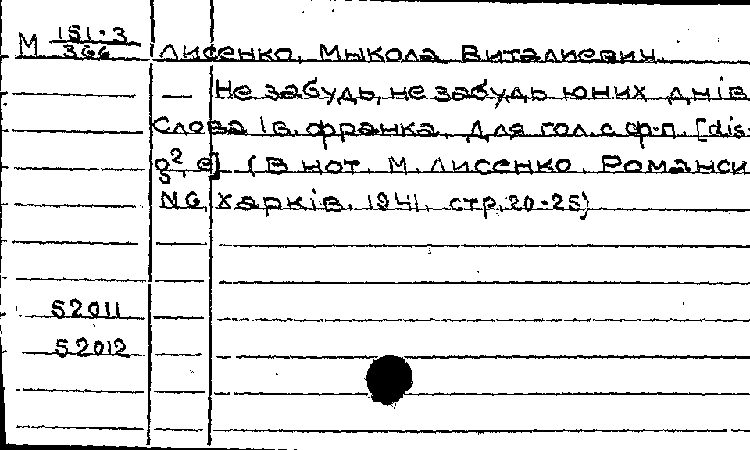 М 151-3/366 Лисенко, Мыкола Виталиевич.
— Не забудь, не забудь юних днів
Слова Ів. Франка. Для гол. с ф-п. [dis-
g², e] (В нот. М. Лисенко. Романси
№6, Харків. 1941. стр. 20-25)
52011
52012